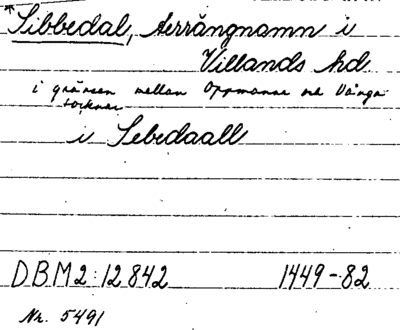 *Sibbedal, terrängnamn i
Villands hd
i gränsen mellan Oppmanna och Vånga
socknar
i Sebedaall
DBM2:12842 1449-82
Nr. 5491